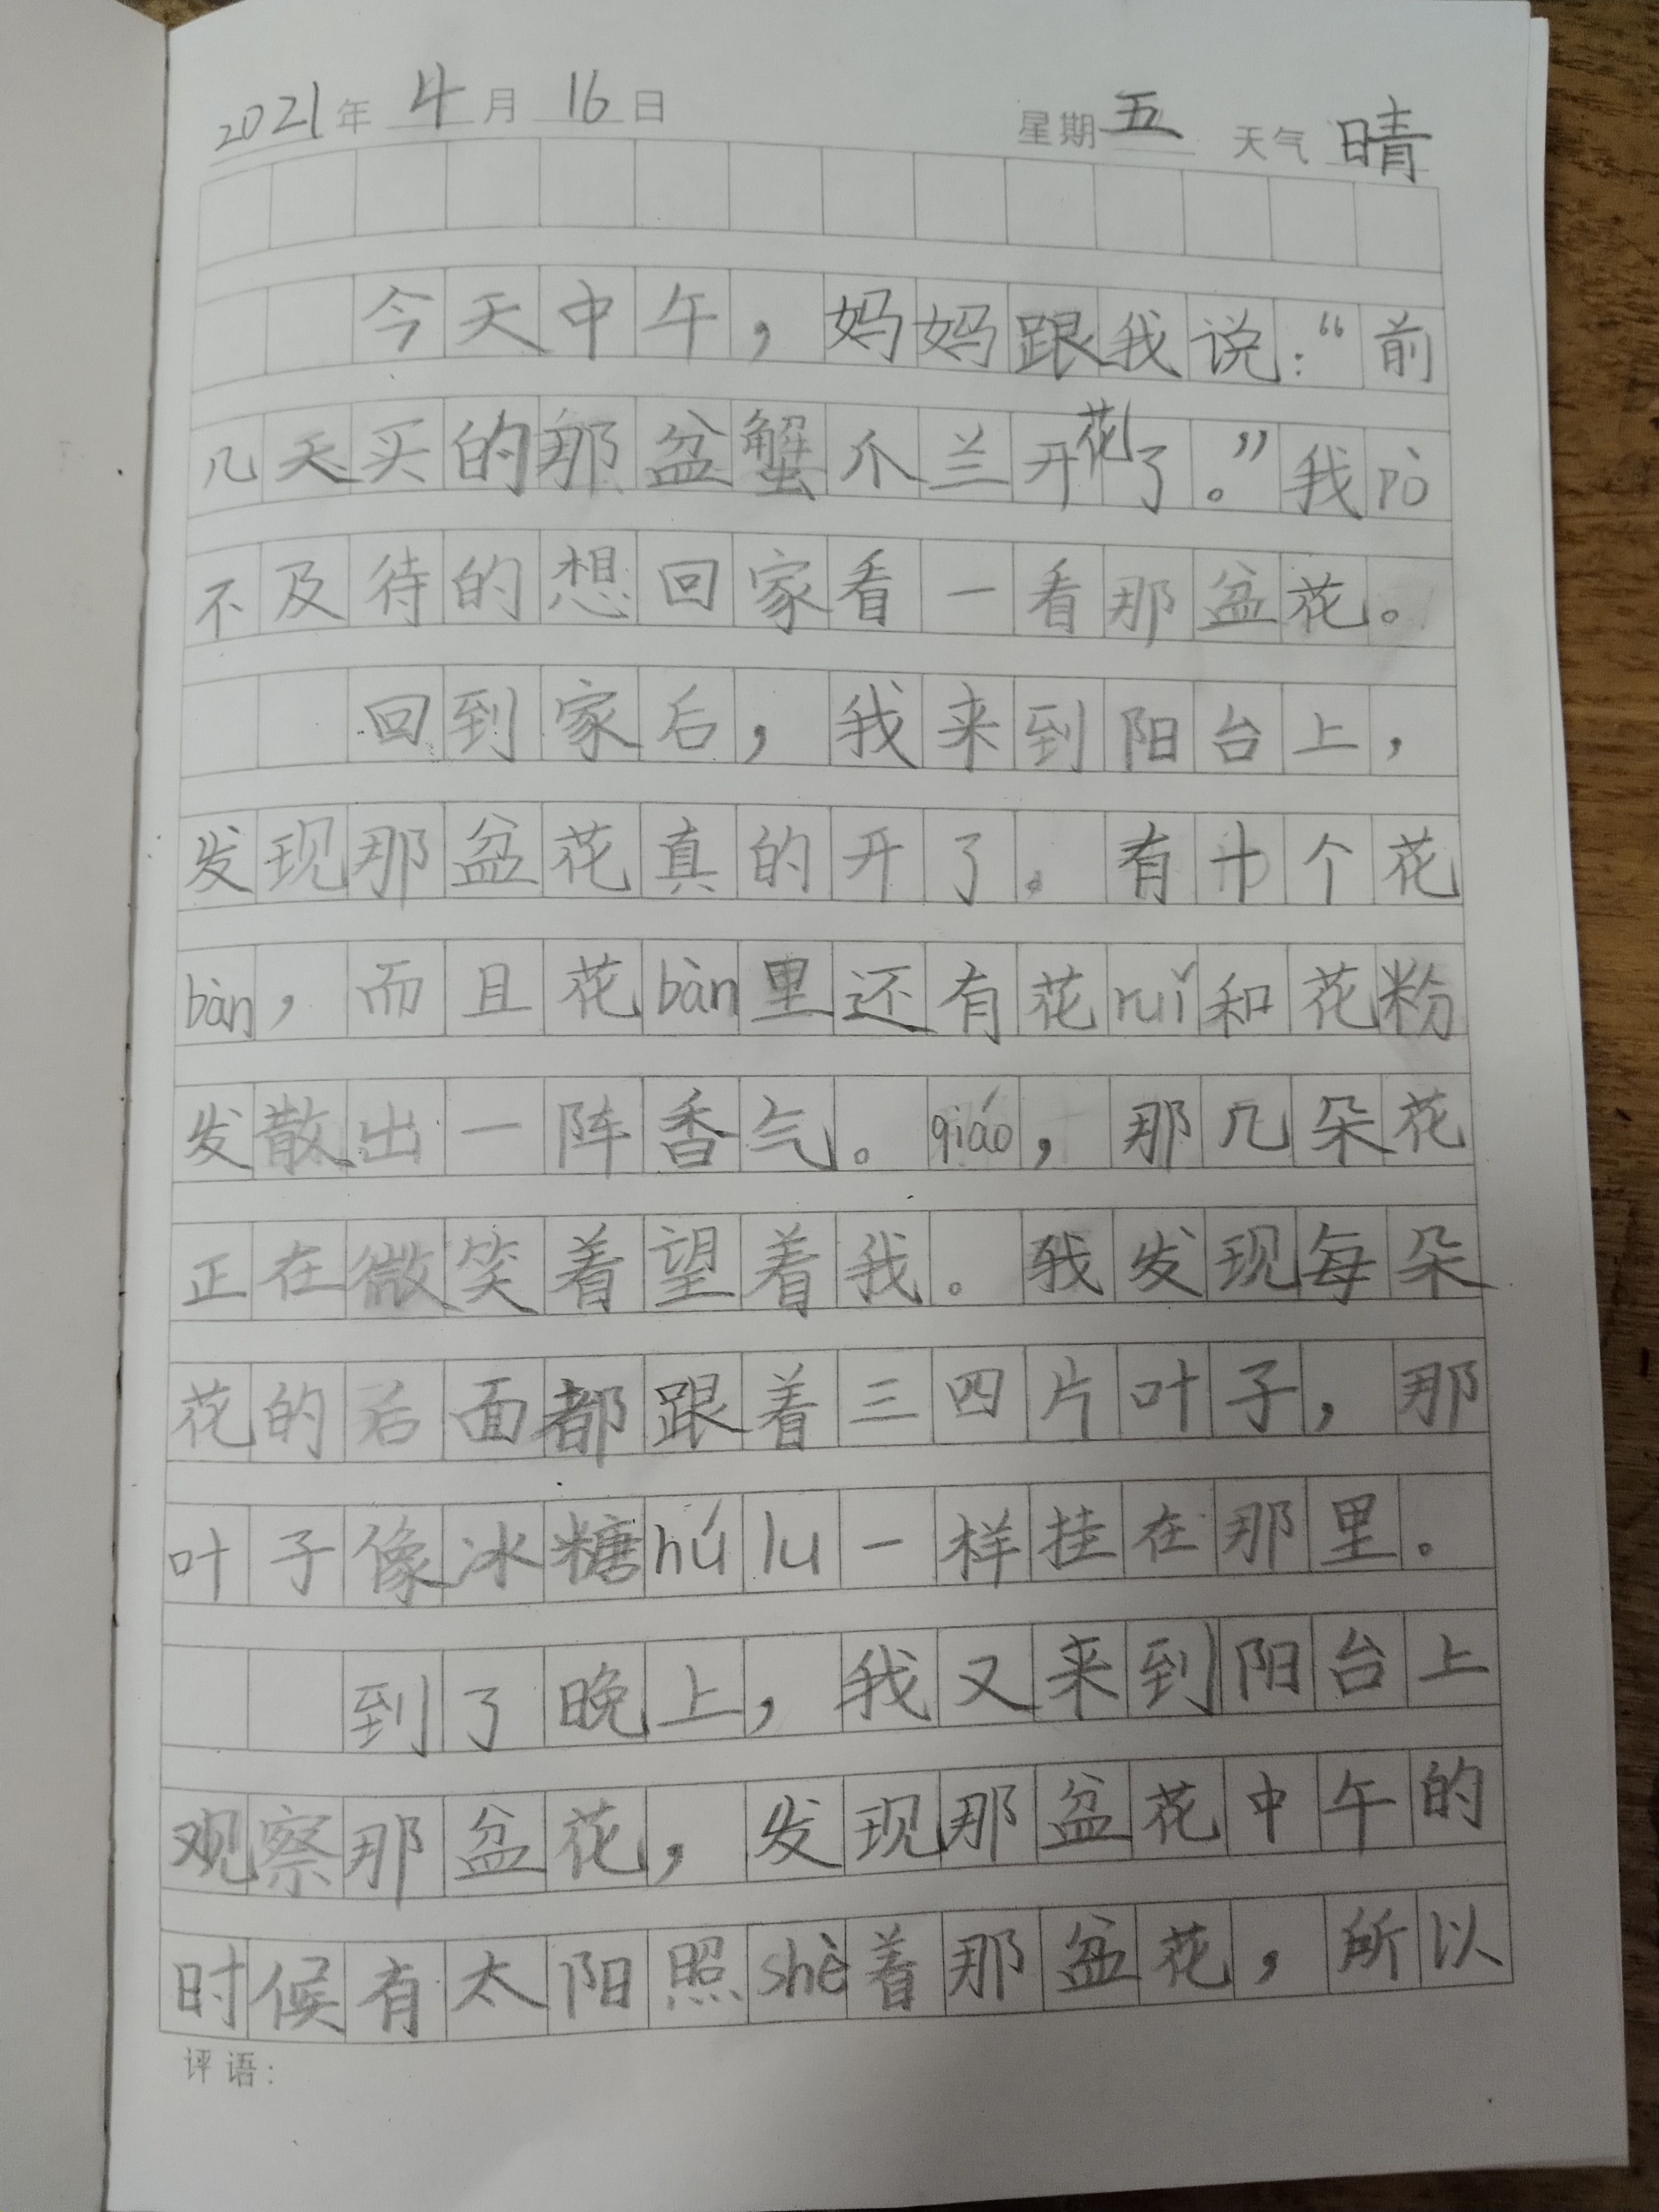 2021年 4月 16日 星期五 天气 晴
今天中午，妈妈跟我说：“前
几天买的那盆蟹爪兰开花了。”我pò
不及待的想回家看一看那盆花。
回到家后，我来到阳台上，
发现那盆花真的开了。有十个花
bàn，而且花bàn里还有花ruǐ和花粉
发散出一阵香气。qiáo，那几朵花
正在微笑着望着我。我发现每朵
花的后面都跟着三四片叶子，那
叶子像冰糖hú lu一样挂在那里。
到了晚上，我又来到阳台上
观察那盆花，发现那盆花中午的
时候有太阳照shè着那盆花，所以
评语：